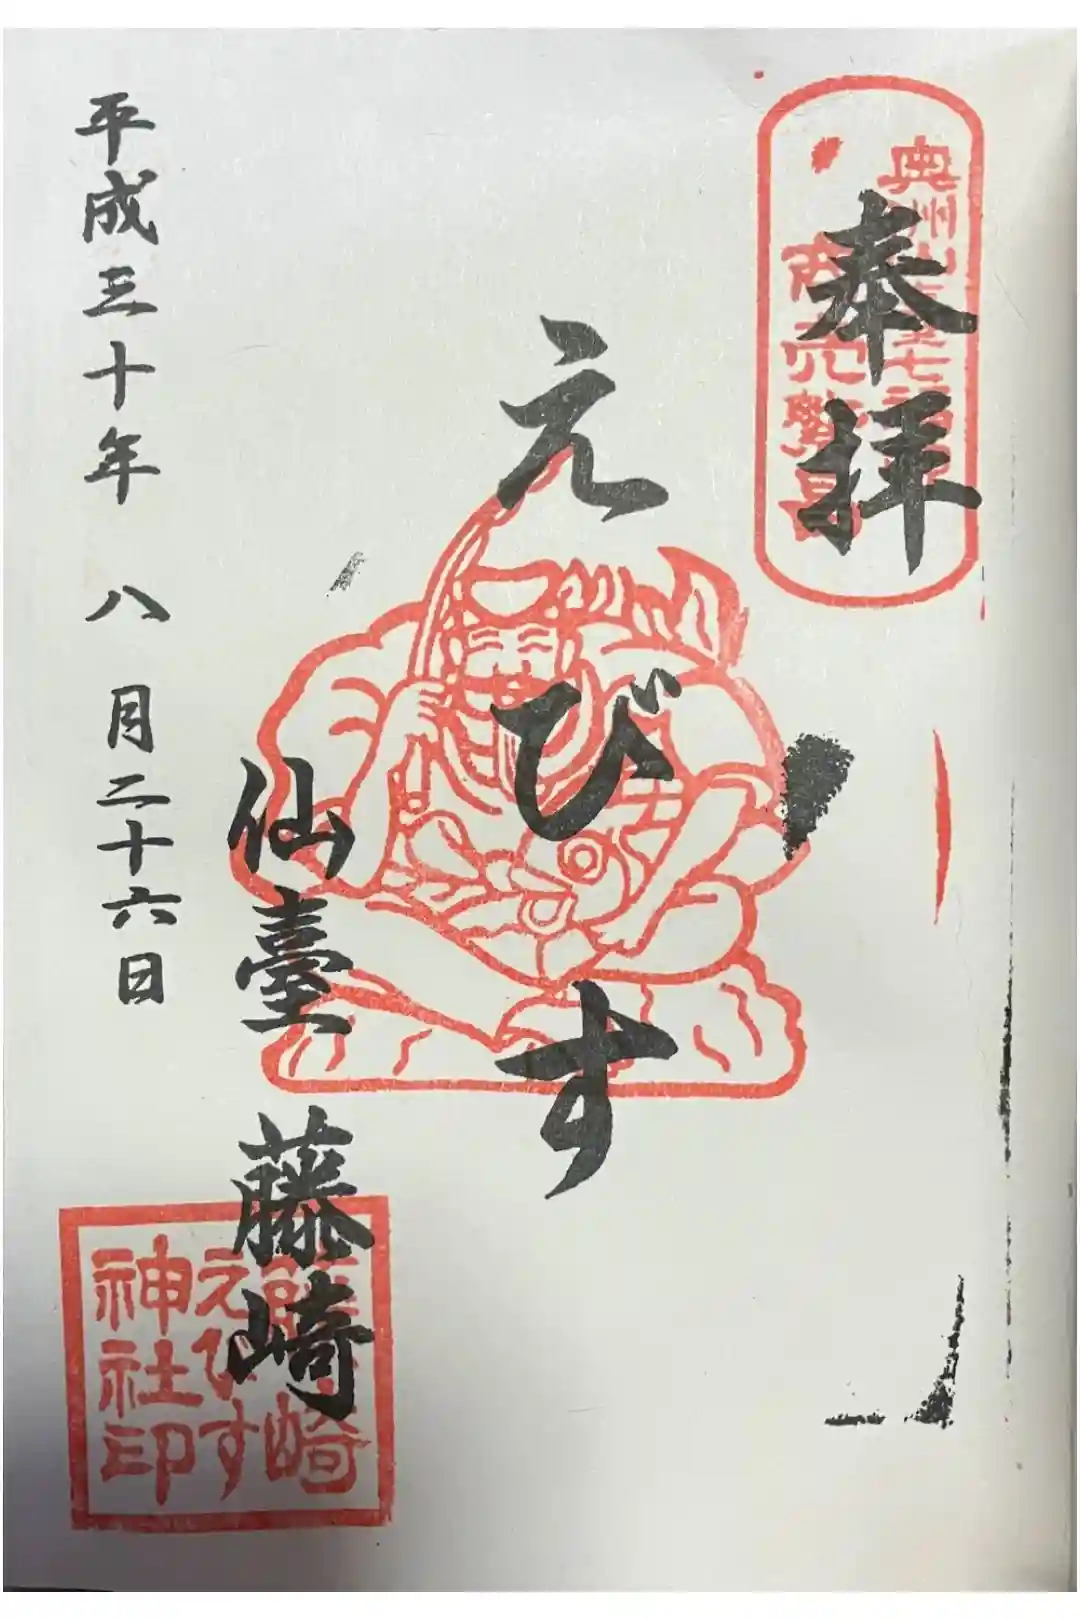 奉拝
奥州仙臺七福神
商売繁昌
えびす
仙臺 藤崎
藤崎
えびす
神社印
平成三十年 八 月二十六日